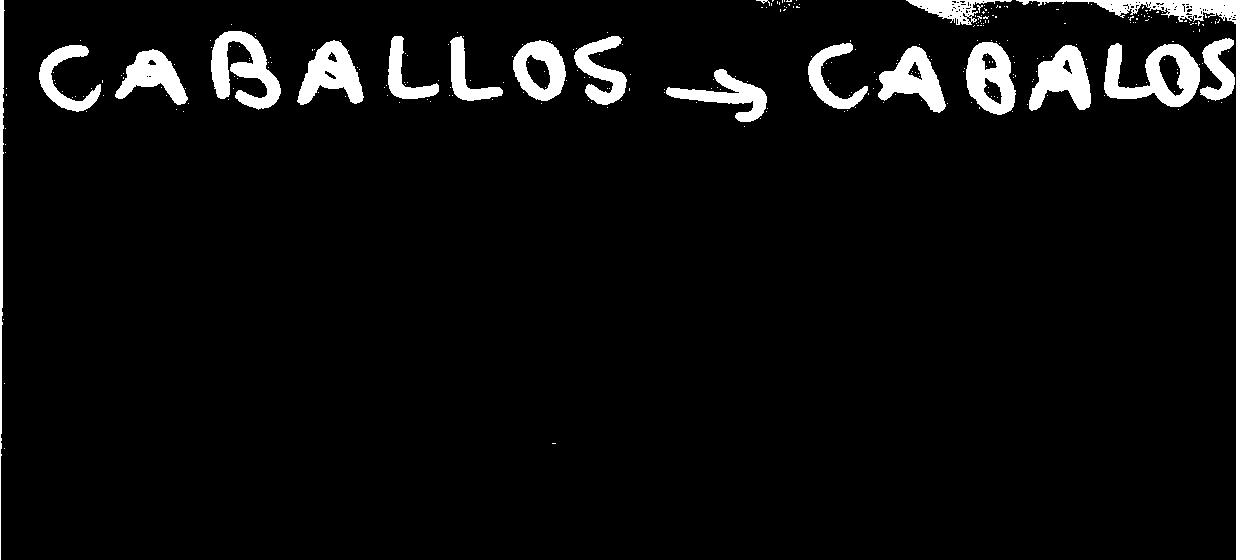 CABALLOS → CABALOS